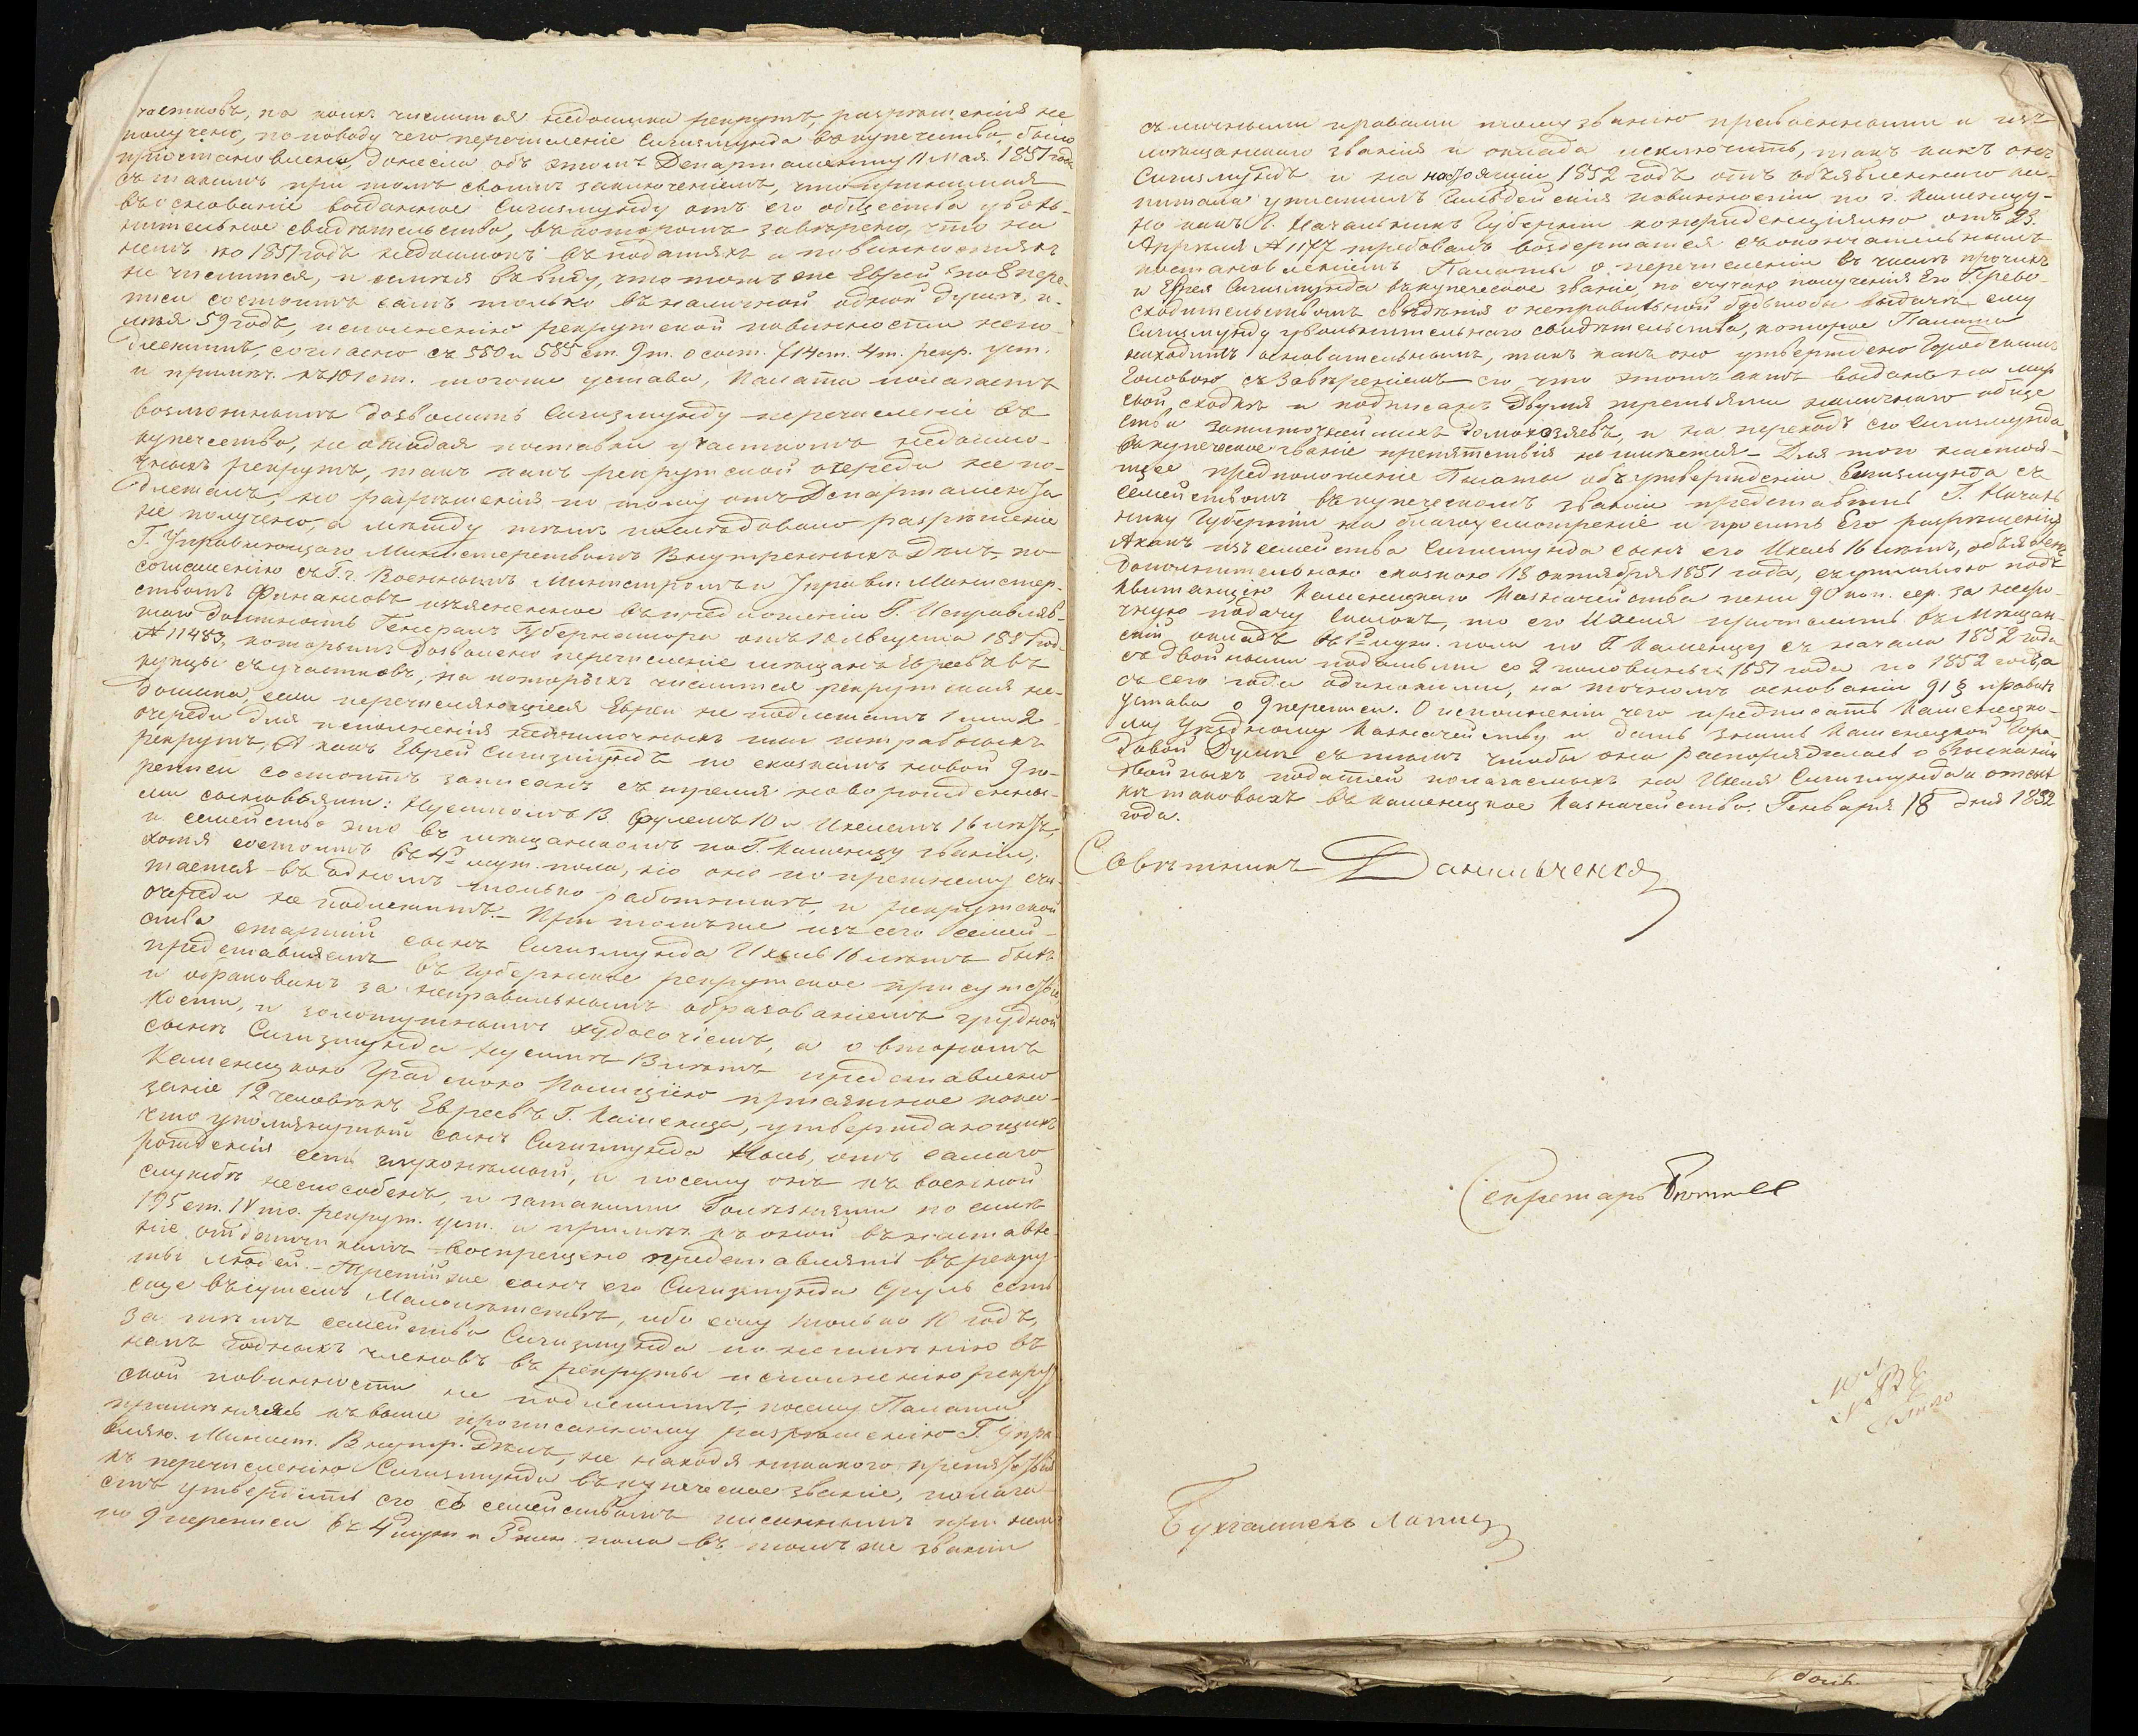 частковъ, на коихъ числится недоимка рекрутъ, разрешенія не
получено, по поводу чего перечисленіе Сигизмунда въ купечество, было
пріостановлено, донесла объ этомъ Департаменту 11 Мая 1851 года
съ такимъ при томъ своимъ заключеніемъ, что принимая
въ основаніе выданное Сигизмунду отъ его общества уволь-
нительное свидѣтельство, въ которомъ завѣрено, что на
немъ по 1851 годъ недоимокъ въ податяхъ и повинностяхъ
не числится, и имѣя въ виду, что тотъ же Еврей по 8 пере-
писи состоитъ самъ только въ наличной одной душѣ, и-
мѣя 59 годъ, исполненію рекрутской повинности непо-
длежитъ, согласно съ 550 и 585 ст. 9 т. о сост. 714 ст. 4 т. рекр. уст.
и примѣч. къ 101 ст. тогоже устава, Палата полагаетъ
возможнымъ дозволить Сигизмунду перечисленіе въ
купечество, не ожидая поставки участкомъ недоимо-
чныхъ рекрутъ, такъ какъ рекрутской очереди не по-
длежалъ, но разрешенія по тому отъ Департамента
не получено, а между тѣмъ последовало разрѣшеніе
Г. Управляющаго Министерствомъ Внутреннихъ Дѣлъ, по
соглашенію съ Г.г. Военнымъ Министромъ и Управл: Министер-
ствомъ Финансовъ изъясненное въ предложеніи Г. Исправляв-
шаго должность Генералъ Губернатора отъ 18 Августа 1851 год.
№ 11483, которымъ дозволено перечисленіе мѣщанъ Евреевъ въ
купцы съ участковъ, на которыхъ числится рекрутская не-
доимка, если перечисляющіеся Евреи не подлежатъ 1 или 2
очереди для исполненія недоимочныхъ или штрафныхъ
рекрутъ, А какъ Еврей Сигизмундъ по сказкамъ новой 9 пе-
реписи состоитъ записанъ съ тремя новорожденны-
ми сыновьями: Нусимомъ 13 Фулемъ 10 и Ихелемъ 16 лѣтъ,
и семейство это въ мѣщанскомъ по Г. Каменцу званіи,
хотя состоитъ въ 4д. муж. пола, но оно по прежнему счи-
тается въ одномъ только работникѣ, и рекрутской
очереди не подлежитъ. – При томъ же изъ сего семей-
ства старшій сынъ Сигизмунда Ихель 16 лѣтъ былъ
представляемъ въ Губернское рекрутское присутствіе
и обракованъ за неправильнымъ образованіемъ грудной
кости, и золотушнымъ худосочіемъ, а о второмъ
сынѣ Сигизмунда Нусимѣ 13 лѣтъ представлено
Каменецкою Градскою Полиціею присяжное пока-
заніе 12 человѣкъ Евреевъ Г. Каменца, утверждающихъ
что упомянутый сынъ Сигизмунда отъ самаго
рожденія есть глухонѣмой, и посему онъ къ военной
службѣ неспособенъ, и затакими болѣзнями по силѣ
195 ст. IV то. рекрут. уст. и примѣч. къ оной въ наставле-
ніе отдатчикамъ воспрещено представлять въ рекру-
ты людей. – Третій же сынъ его Сигизмунда Фуль есть
еще въ сущемъ Малолѣтствѣ, ибо ему только 10 годъ,
за тѣмъ семейство Сигизмунда по неимѣнію въ
немъ годныхъ членовъ въ рекруты исполненію рекрут
ской повинности не подлежитъ, посему Палата
примѣняясь къ выше прописанному разрѣшенію Г. Упра-
вляю. Минист. Внутр. Дѣлъ, не находя никакого препятствія
къ перечисленію Сигизмунда въ купеческое званіе, полага-
етъ утвердить его съ семействомъ писаннымъ при немъ
по 9 переписи въ 4 муж. и 3 жен. пола въ томъ же званіи
съ личными правами тому званію присвоенными и изъ
мѣщанскаго званія и оклада исключить, такъ какъ онъ
Сигизмундъ и на настоящій 1852 годъ отъ объявленнаго ка-
питала уплатилъ Гильдейскія повинности по г. Каменцу –
Но какъ Г. Начальникъ Губерніи конфиденціально отъ 23
Апрѣля № 1177 требовалъ воздержатся съ окончательнымъ
постановленіемъ Палаты о перечисленіи въ числѣ прочихъ
и Еврея Сигизмунда въ купеческое званіе, по случаю полученія Его Прево-
сходительствомъ свѣдѣнія о неправильной будьтобы выдачѣ ему
Сигизмунду увольнительнаго свидѣтельства, которое Палата
находитъ основательнымъ, такъ какъ оно утверждено Городскимъ
Головою съ завѣреніемъ его, что этотъ актъ выданъ на мир
ской сходкѣ и подписанъ двумя третьями наличнаго обще
ства зажиточнейшихъ домохозяевъ, и на переходъ его Сигизмунда
въ купеческое званіе препятствія не имѣется – Для того настоя-
щее предположеніе Палаты объ утвержденіи Сигизмунда съ
семействомъ въ купеческомъ званіи представить Г. Началь
нику Губерніи на благоусмотреніе и просить Его разрѣшенія
А какъ изъ семейства Сигизмунда сынъ его Ихель 16 лѣтъ, объявленъ
дополнительною сказкою 18 октября 1851 года, съ уплатою подъ
квитанцію Каменецкаго Казначейства пени 90 коп. сер. за несро-
чную подачу сказокъ, то его Ихеля причислить въ Мѣщан-
скій окладъ въ 1д. муж. пола по Г. Каменцу съ начала 1852 года
съ двойными податьми со 2 половины 1851 года по 1852 годъ, а
съ сего года одинокими, на точномъ основаніи 91 § правилъ
Устава о 9 переписи. О исполненіи чего предписать Каменецко-
му Уѣздному Казначейству и дать знать Каменецкой Горо-
довой Думѣ съ тѣмъ чтобы она распорядилась о взысканіи
двойныхъ податей полагаемыхъ на Ихеля Сигизмунда и отсыл
кѣ таковыхъ въ Каменецкое Казначейство. Генваря 18 дня 1852
года.
Совѣтникъ Данильченко
Секретарь
Бухгалтеръ